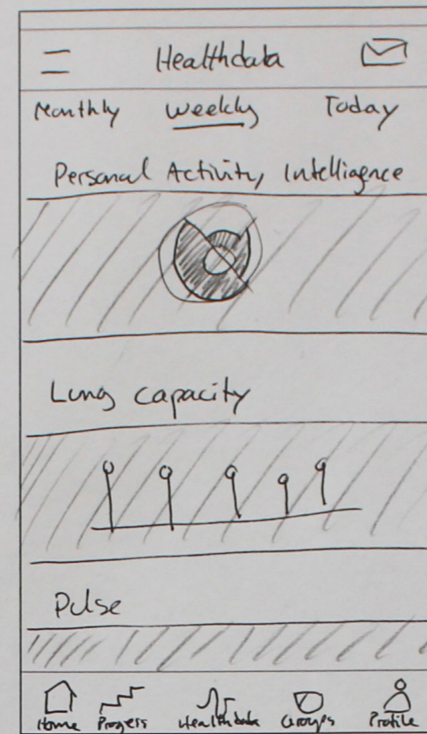 Healthdata
Monthly Weekly Today
Personal Activity Intelligence
Lung Capacity
Pulse
Home Progess Healthdata Groups Profile